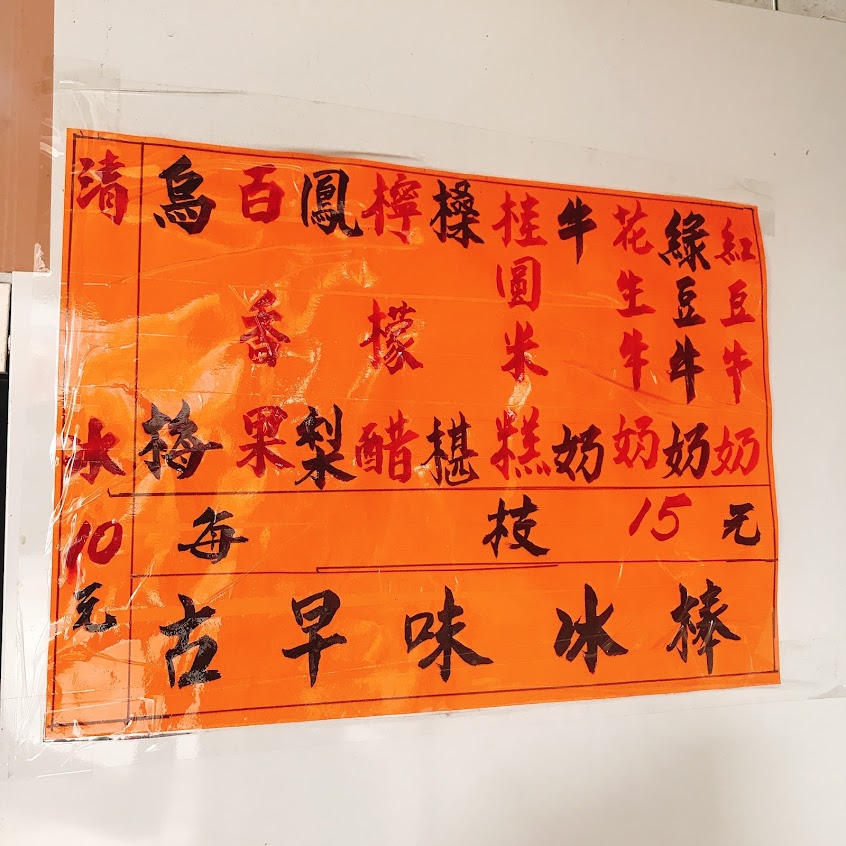 紅豆牛奶
綠豆牛奶
花生牛奶
牛奶
桂圓米糕
橾椹
檸檬醋
鳳梨
百香果
烏梅
每枝15元
清冰10元
古早味冰棒